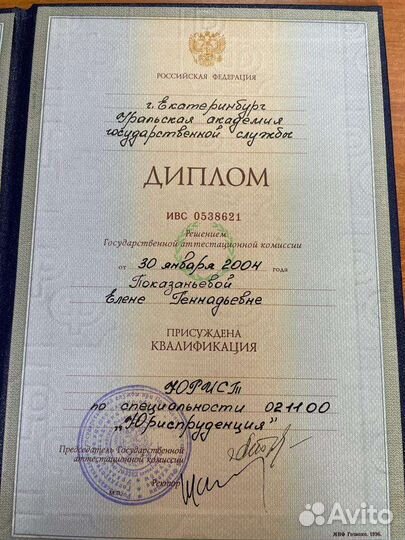 РОССИЙСКАЯ ФЕДЕРАЦИЯ
г. Екатеринбург
Уральская академия
государственной службы
ДИПЛОМ
ИВС 0538621
Решением
Государственной аттестационной комиссии
от 30 января 2004 года
Показаньевой
Елене Геннадьевне
ПРИСУЖДЕНА
КВАЛИФИКАЦИЯ
ЮРИСТ
по специальности 021100
„Юриспруденция"
Председатель Государственной
аттестационной комиссии
Ректор
Avito
МПФ Гознака. 1996.